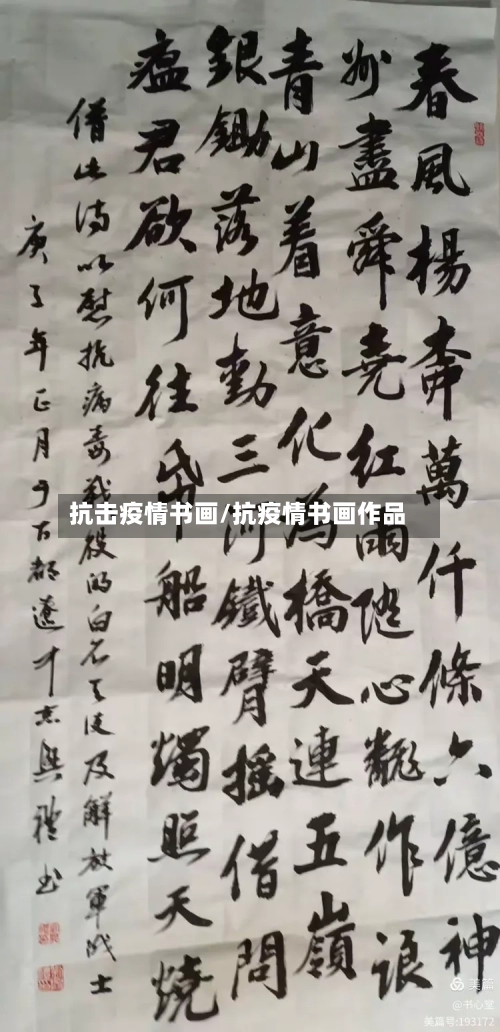 春風楊柳萬仟條六億神
州盡舜堯紅雨随心翻作浪
青山着意化為橋天連五嶺
銀鋤落地動三河鐵臂摇借問
瘟君欲何往帋船明燭照天燒
借此诗以慰抗病毒战役的白衣天使及解放軍战士
庚子年正月于古都遼中京興禮书
抗击疫情书画/抗疫情书画作品
美篇
@书心堂
美篇号:193172